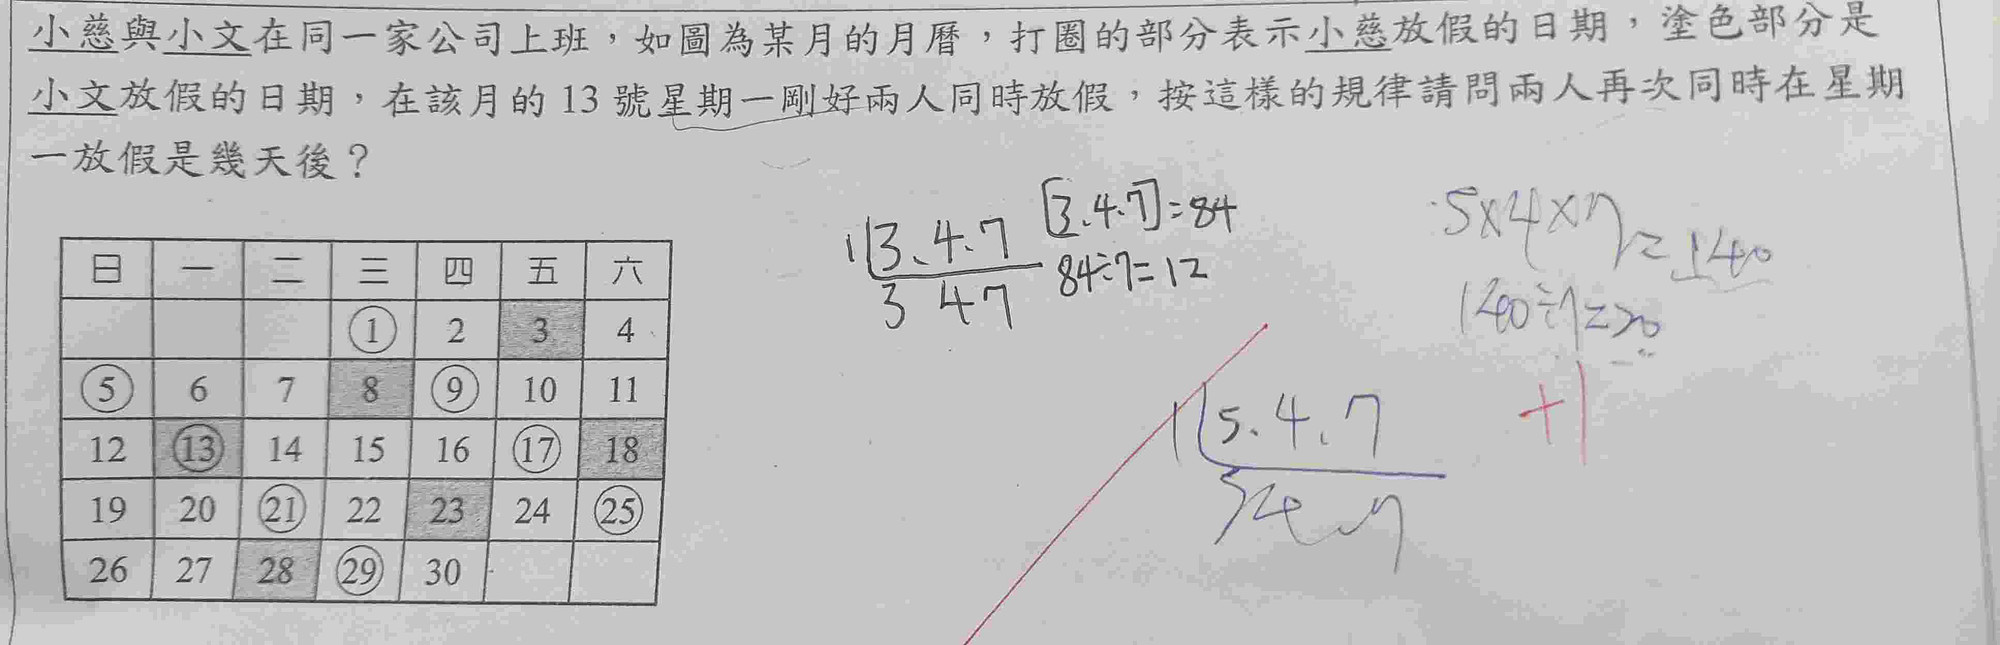 小慈與小文在同一家公司上班，如圖為某月的月曆，打圈的部分表示小慈放假的日期，塗色部分是
小文放假的日期，在該月的 13 號星期一剛好兩人同時放假，按這樣的規律請問兩人再次同時在星期
一放假是幾天後？
日 一 二 三 四 五 六
1 2 3 4
5 6 7 8 9 10 11
12 13 14 15 16 17 18
19 20 21 22 23 24 25
26 27 28 29 30
1 3、4、7
3 4 7
[3、4、7]=84
84÷7=12
5×4×7=140
140÷7=20
+1
1 5、4、7
5 4 7